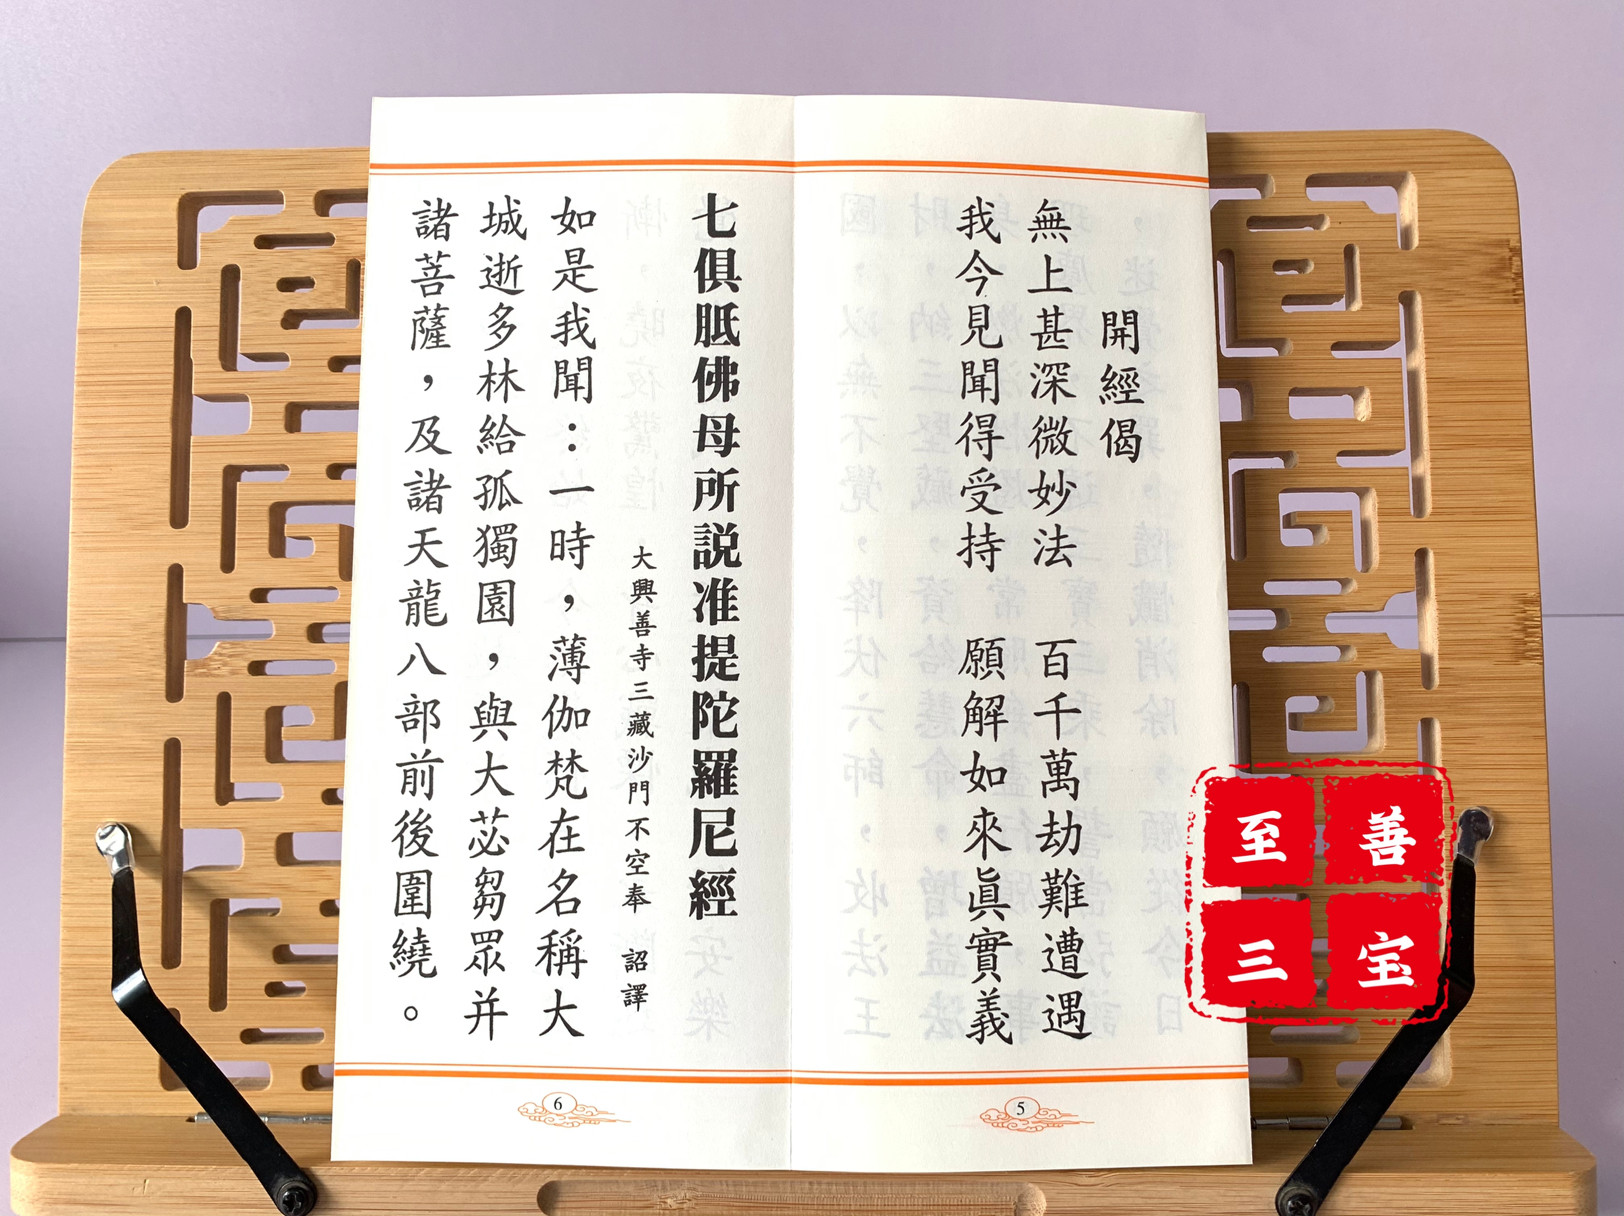 開經偈
無上甚深微妙法　百千萬劫難遭遇
我今見聞得受持　願解如來眞實義
5
七俱胝佛母所説准提陀羅尼經
大興善寺三藏沙門不空奉　詔譯
如是我聞：一時，薄伽梵在名稱大
城逝多林給孤獨園，與大苾芻眾并
諸菩薩，及諸天龍八部前後圍繞。
6
至善
三宝